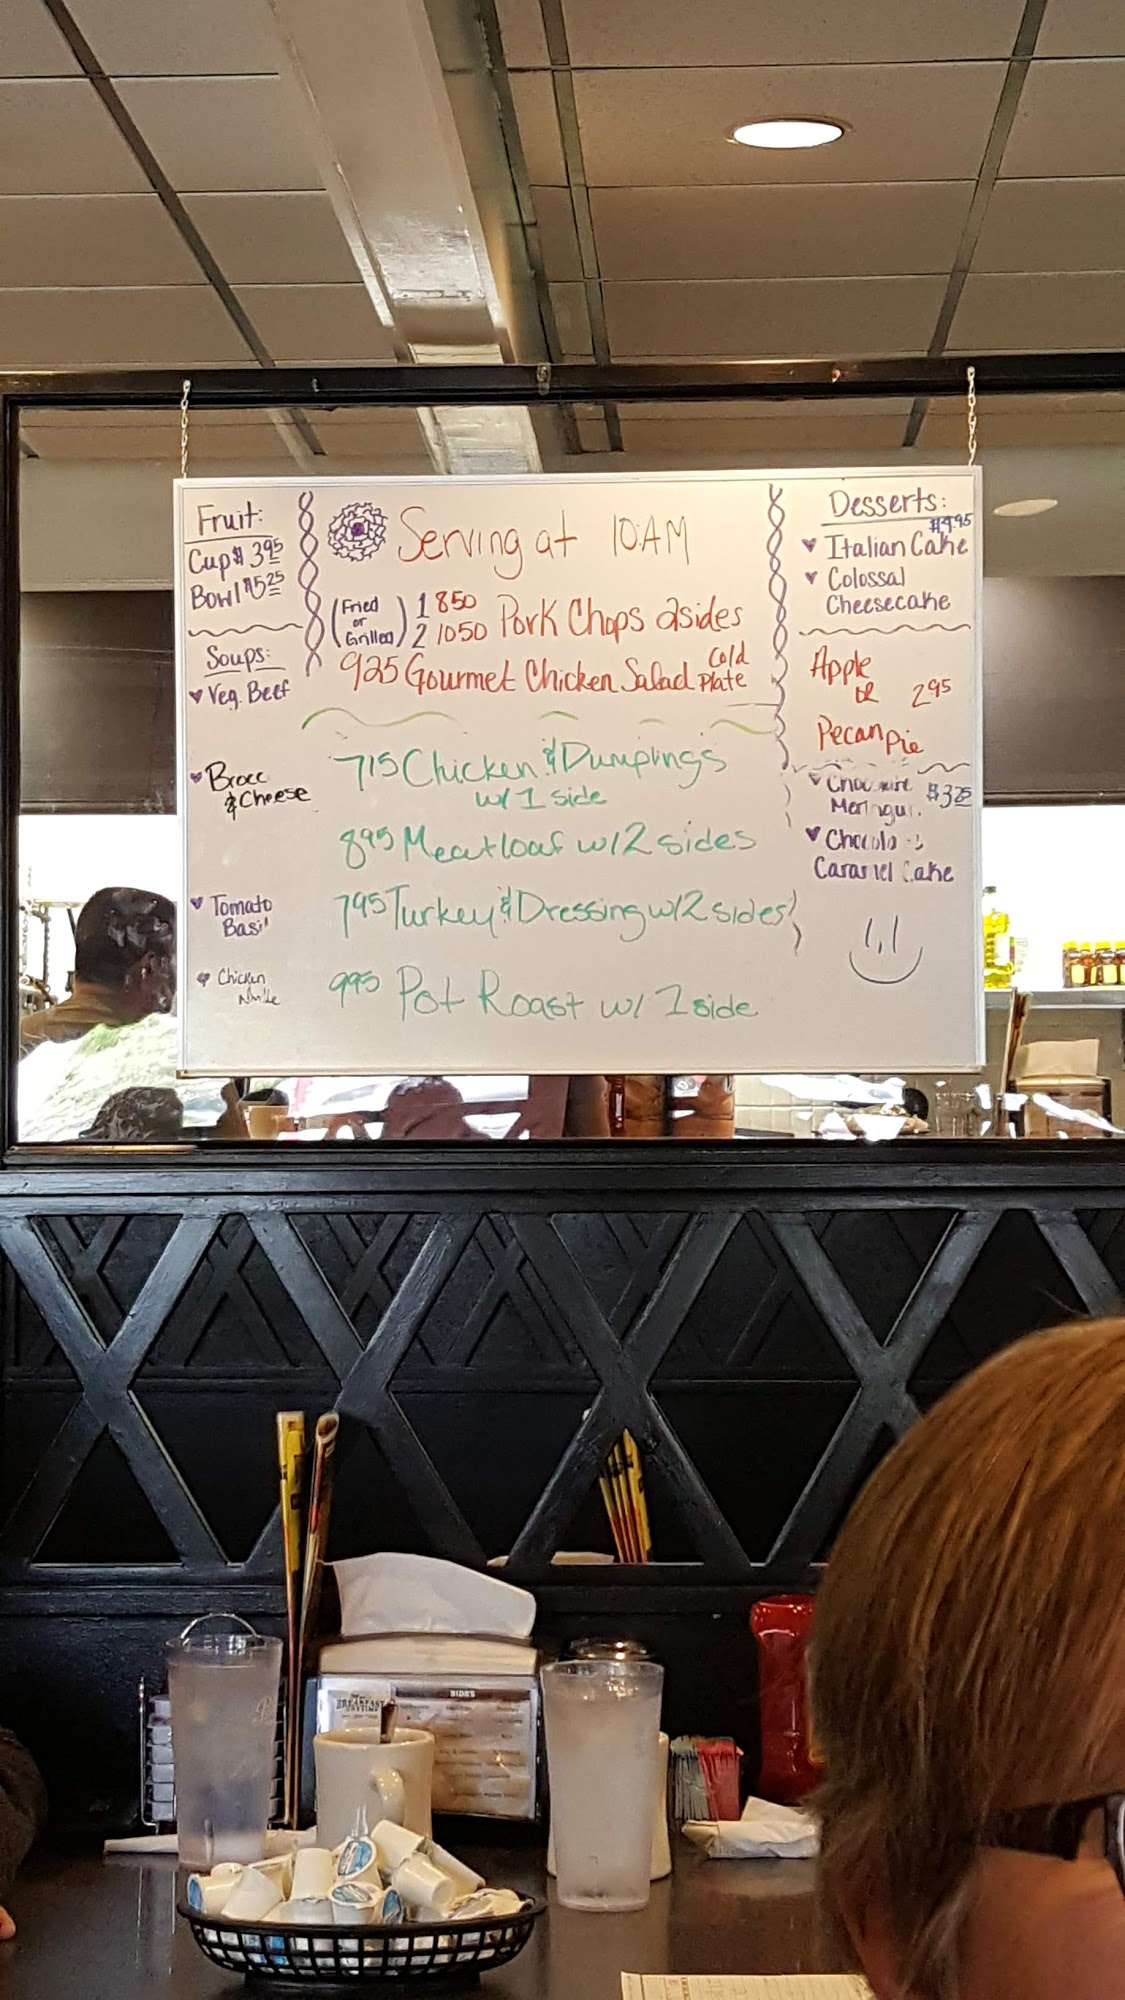 Fruit:
Cup $3.95
Bowl $5.25
Soups:
Veg. Beef
Brocc
& Cheese
Tomato
Basil
Chicken
Serving at 10:AM
(Fried or Grilled) 1 850
2 1050 Pork Chops 2sides
925 Gourmet Chicken Salad Cold Plate
715 Chicken & Dumplings
w/ 1 side
895 Meatloaf w/ 2 sides
795 Turkey & Dressing w/ 2 sides
995 Pot Roast w/ 1 side
Desserts:
$4.95
Italian Cake
Colossal
Cheesecake
Apple
OR 2.95
Pecan Pie
$3.25
Cake
SIDES
BREAKFAST